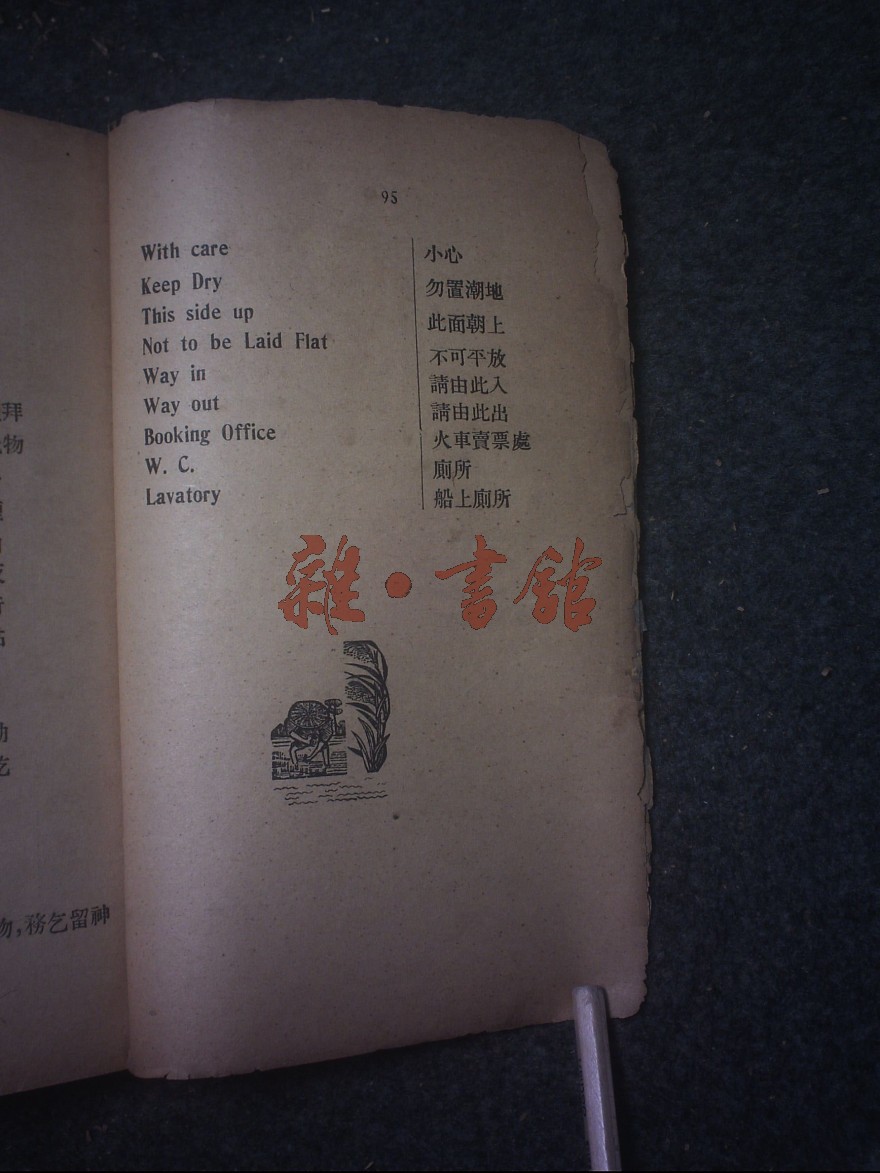 95
With care 小心
Keep Dry 勿置潮地
This side up 此面朝上
Not to be Laid Flat 不可平放
Way in 請由此入
Way out 請由此出
Booking Office 火車賣票處
W. C. 廁所
Lavatory 船上廁所
雜·書館
拜
物
物,務乞留神